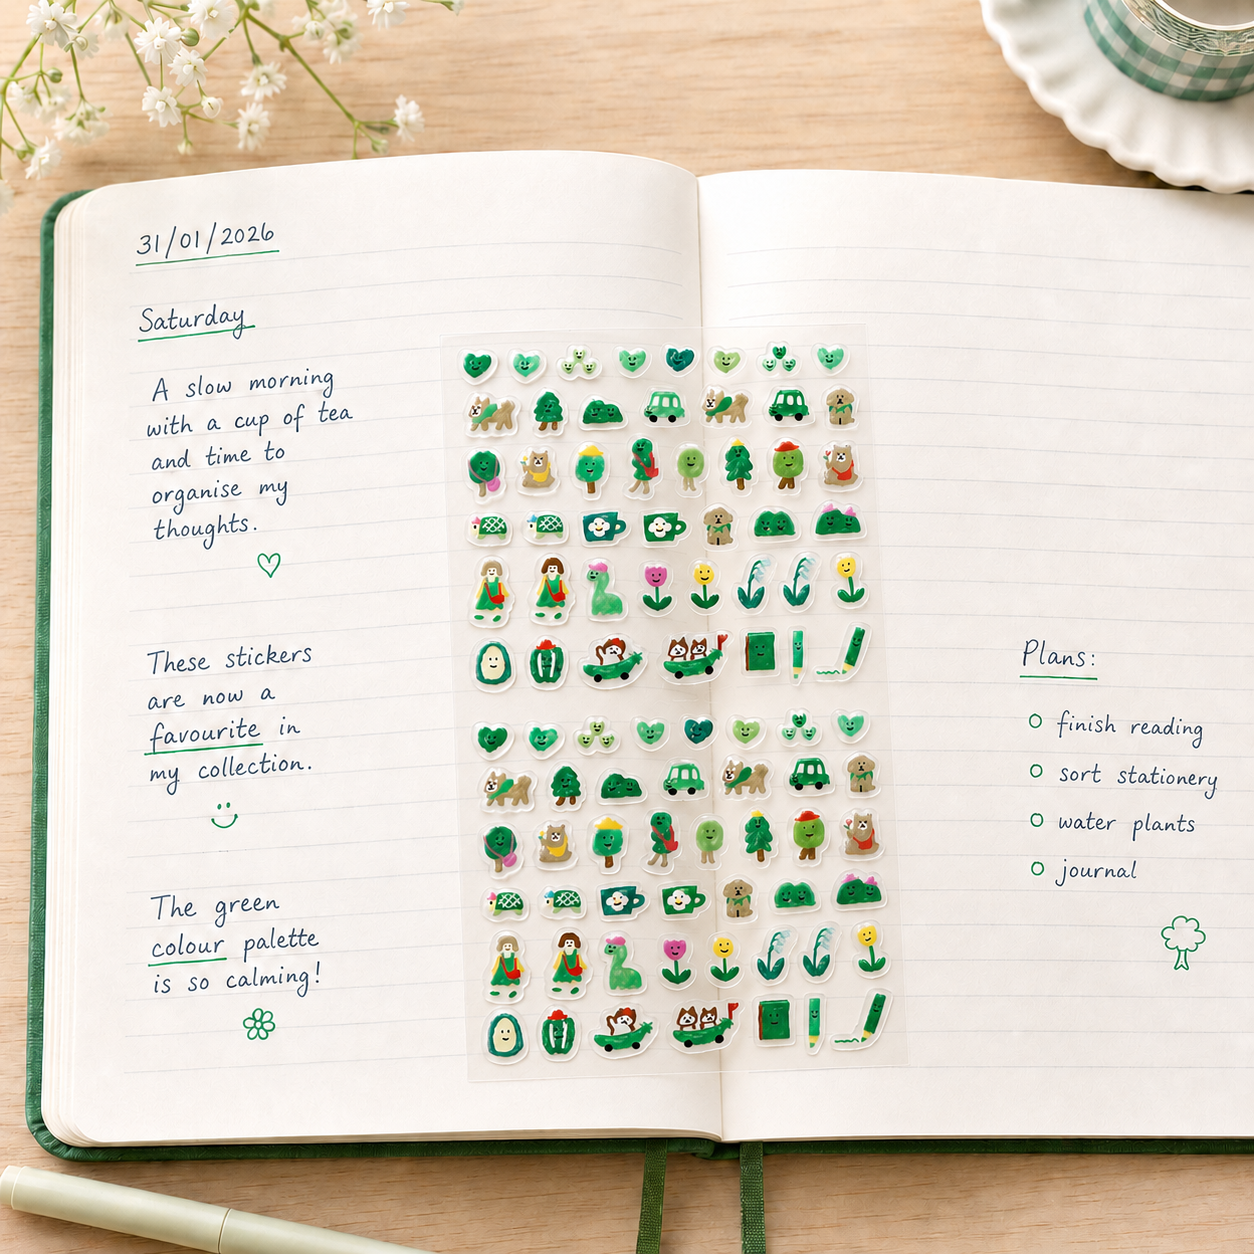 31/01/2026
Saturday
A slow morning
with a cup of tea
and time to
organise my
thoughts.
These stickers
are now a
favourite in
my collection.
The green
colour palette
is so calming!
Plans:
finish reading
sort stationery
water plants
journal